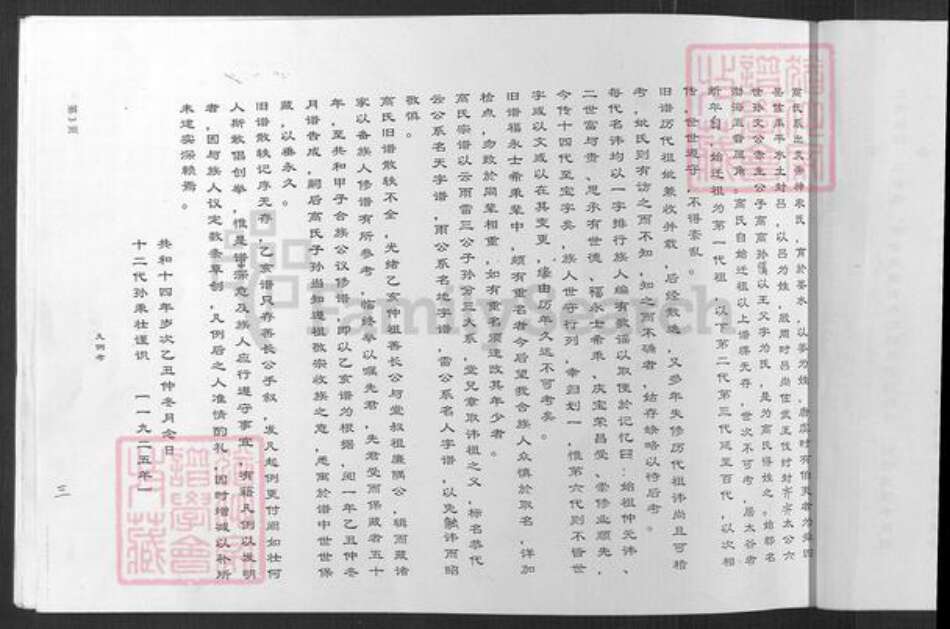 高氏系出炎帝神农氏,育於姜水,以姜为姓,唐虞时有伯夷者为舜四
岳佐禹平水土封吕,以吕为姓,殷周时吕尚佐武王伐纣封齐齐太公六
世孙文公赤生公子高高孙傒以王父字为氏,是为高氏得姓之始郡名
渤海音属角。高氏自始迁祖以上谱牒无存,世次不可考,居太谷者
断年自,始迁祖为第一代祖,以下第二代第三代延至百代,以次相
传,世世遵守,不得紊乱。
旧谱历代祖妣兼收并载,后经散逸,又多年失修历代祖讳尚且可稽
考,妣氏则有访之而不知,知之而不确者,姑存缺略以待后考。
每代名讳均以一字排行族人编有歌谣以取便於记忆曰:始祖仲元讳、
二世富与贵、思承有世德、福永士希秉、庆宝荣昌受、崇修业顺先,
今传十四代至宝字矣,族人世守行列,幸归划一,惟第六代则不皆世
字或以文或以在其变更,缘由历年久远不可考矣。
旧谱福永士希秉辈中,颇有重名者今后望我合族人众慎於取名,详加
检点,勿致於同辈相重,如有重名须速改其年少者。
高氏宗谱以云雨雷三公子孙分三大系,堂兄章取讳祖之义,标名恭代
云公系名天字谱,雨公系名地字谱,雷公系名人字谱,以免触讳而昭
敬慎。
高氏旧谱散轶不全,光绪乙亥仲祖善长公与堂叔祖廉隅公,辑而藏诸
家以备族人修谱有所参考,临终举以嘱先君,先君受而保藏者五十
年,至共和甲子合族公议修谱,即以乙亥谱为根据,阅一年乙丑仲冬
月谱告成,嗣后高氏子孙当知道祖敬宗收族之意,悉寓於谱中世世保
藏,以垂永久。
旧谱散轶记序无存,乙亥谱只存善长公手叙,发凡起例更付阙如壮何
人斯敢倡创举,惟是谱深危及族人应行遵守事宜,有藉凡例以发明
者,因与族人议定数条草创,凡例后之人准情酌礼,因时增减以补所
未逮实深赖焉。
共和十四年岁次乙丑仲冬月念日
十二代孙秉壮谨识 【一九二五年】
凡例考
三